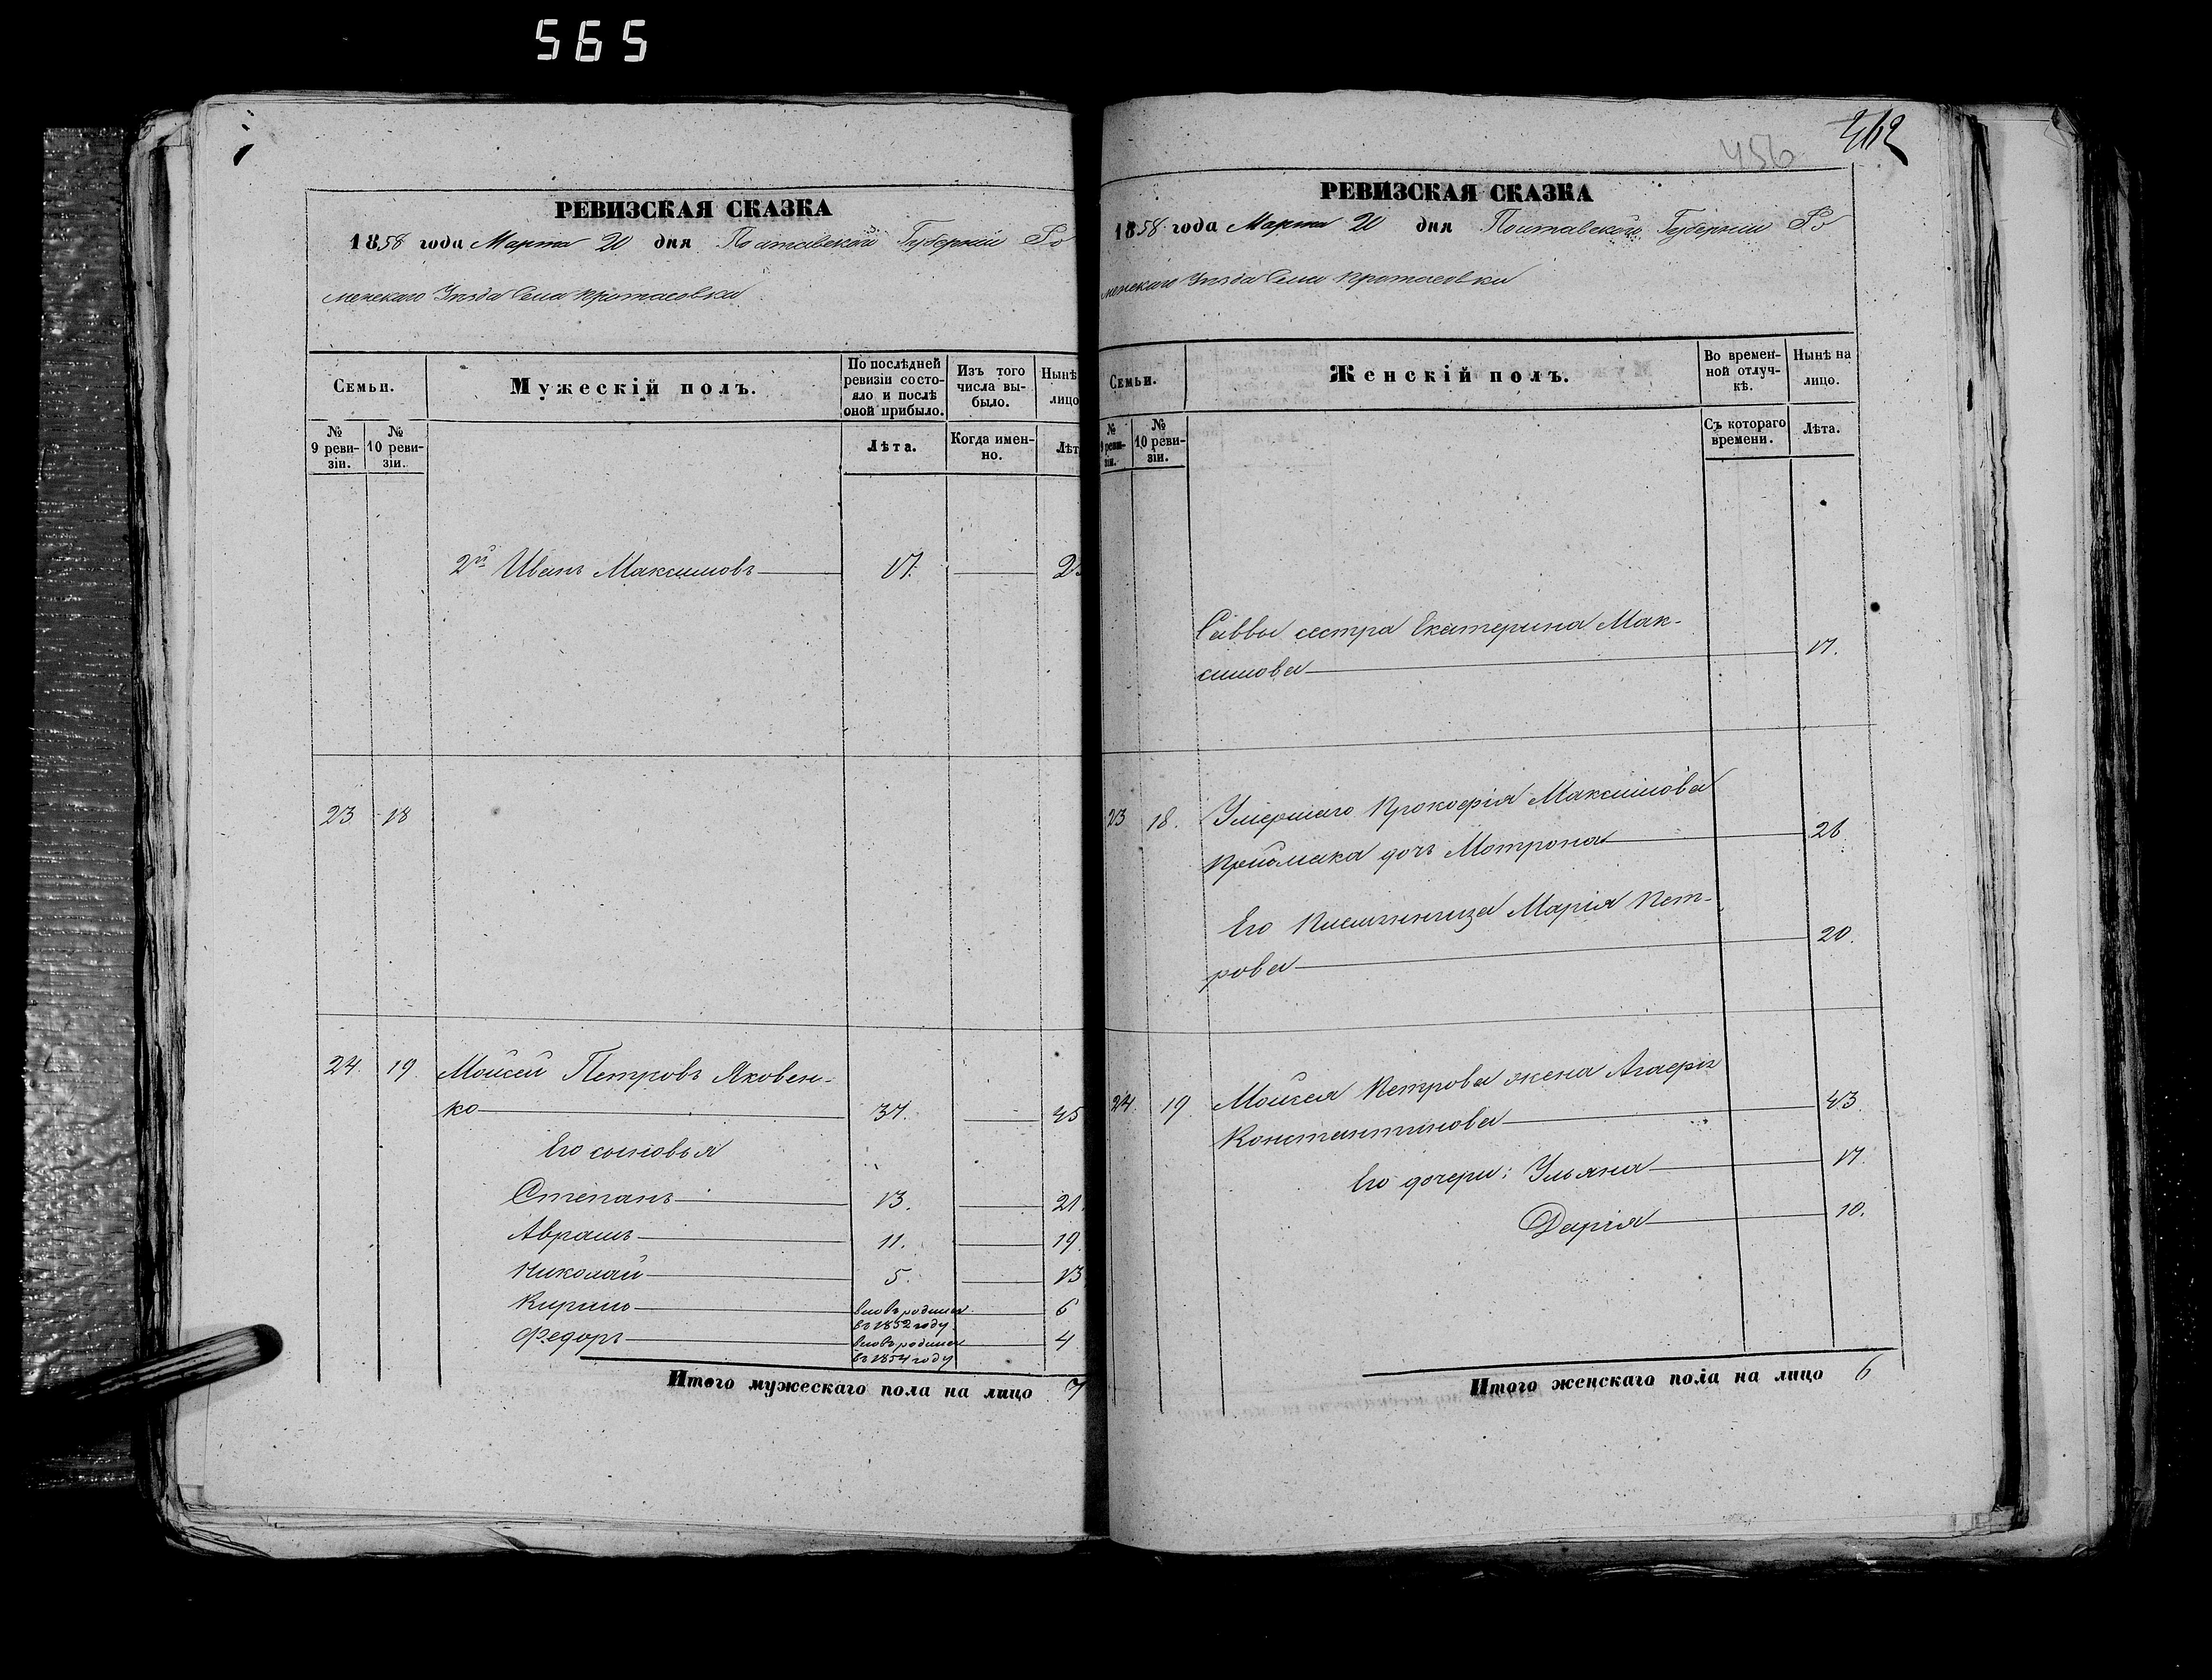 565
РЕВИЗСКАЯ СКАЗКА
1858 года Марта 20 дня Полтавской Губерніи Ро
менскаго Уѣзда Села Протасовки
Семьи.
Мужескій полъ.
По послѣдней ревизіи состояло и послѣ оной прибыло.
Изъ того числа выбыло.
Нынѣ
лицо
№ 9 ревизіи.
№ 10 ревизіи.
Лѣта.
Когда именно.
Лѣт
2й Иванъ Максимовъ 17.
23 18
24. 19. Моисей Петровъ Яковен-
ко 37. 45
Его сыновья
Степанъ 13. 21.
Аврамъ 11. 19.
Николай 5. 13
Кирило вновь родился въ 1852 году 6
Федоръ вновь родился въ 1854 году 4
Итого мужескаго пола на лицо 7
456
462
РЕВИЗСКАЯ СКАЗКА
1858 года Марта 20 дня Полтавской Губерніи Ро
менскаго Уѣзда Села Протасовки
Семьи.
Женскій полъ.
Во временной отлучкѣ.
Нынѣ на лицо.
№ 9 ревизіи.
№ 10 ревизіи.
Съ котораго времени.
Лѣта.
Саввы сестра Екатерина Мак-
симова 17.
23 18. Умершаго Прокофія Максимова
Пріймака дочь Мотрона 26
Его Племянница Марія Пет-
рова 20.
24. 19. Моисея Петрова жена Агафія
Константинова 43.
Его дочери: Ульяна 17.
Дарія 10.
Итого женскаго пола на лицо 6